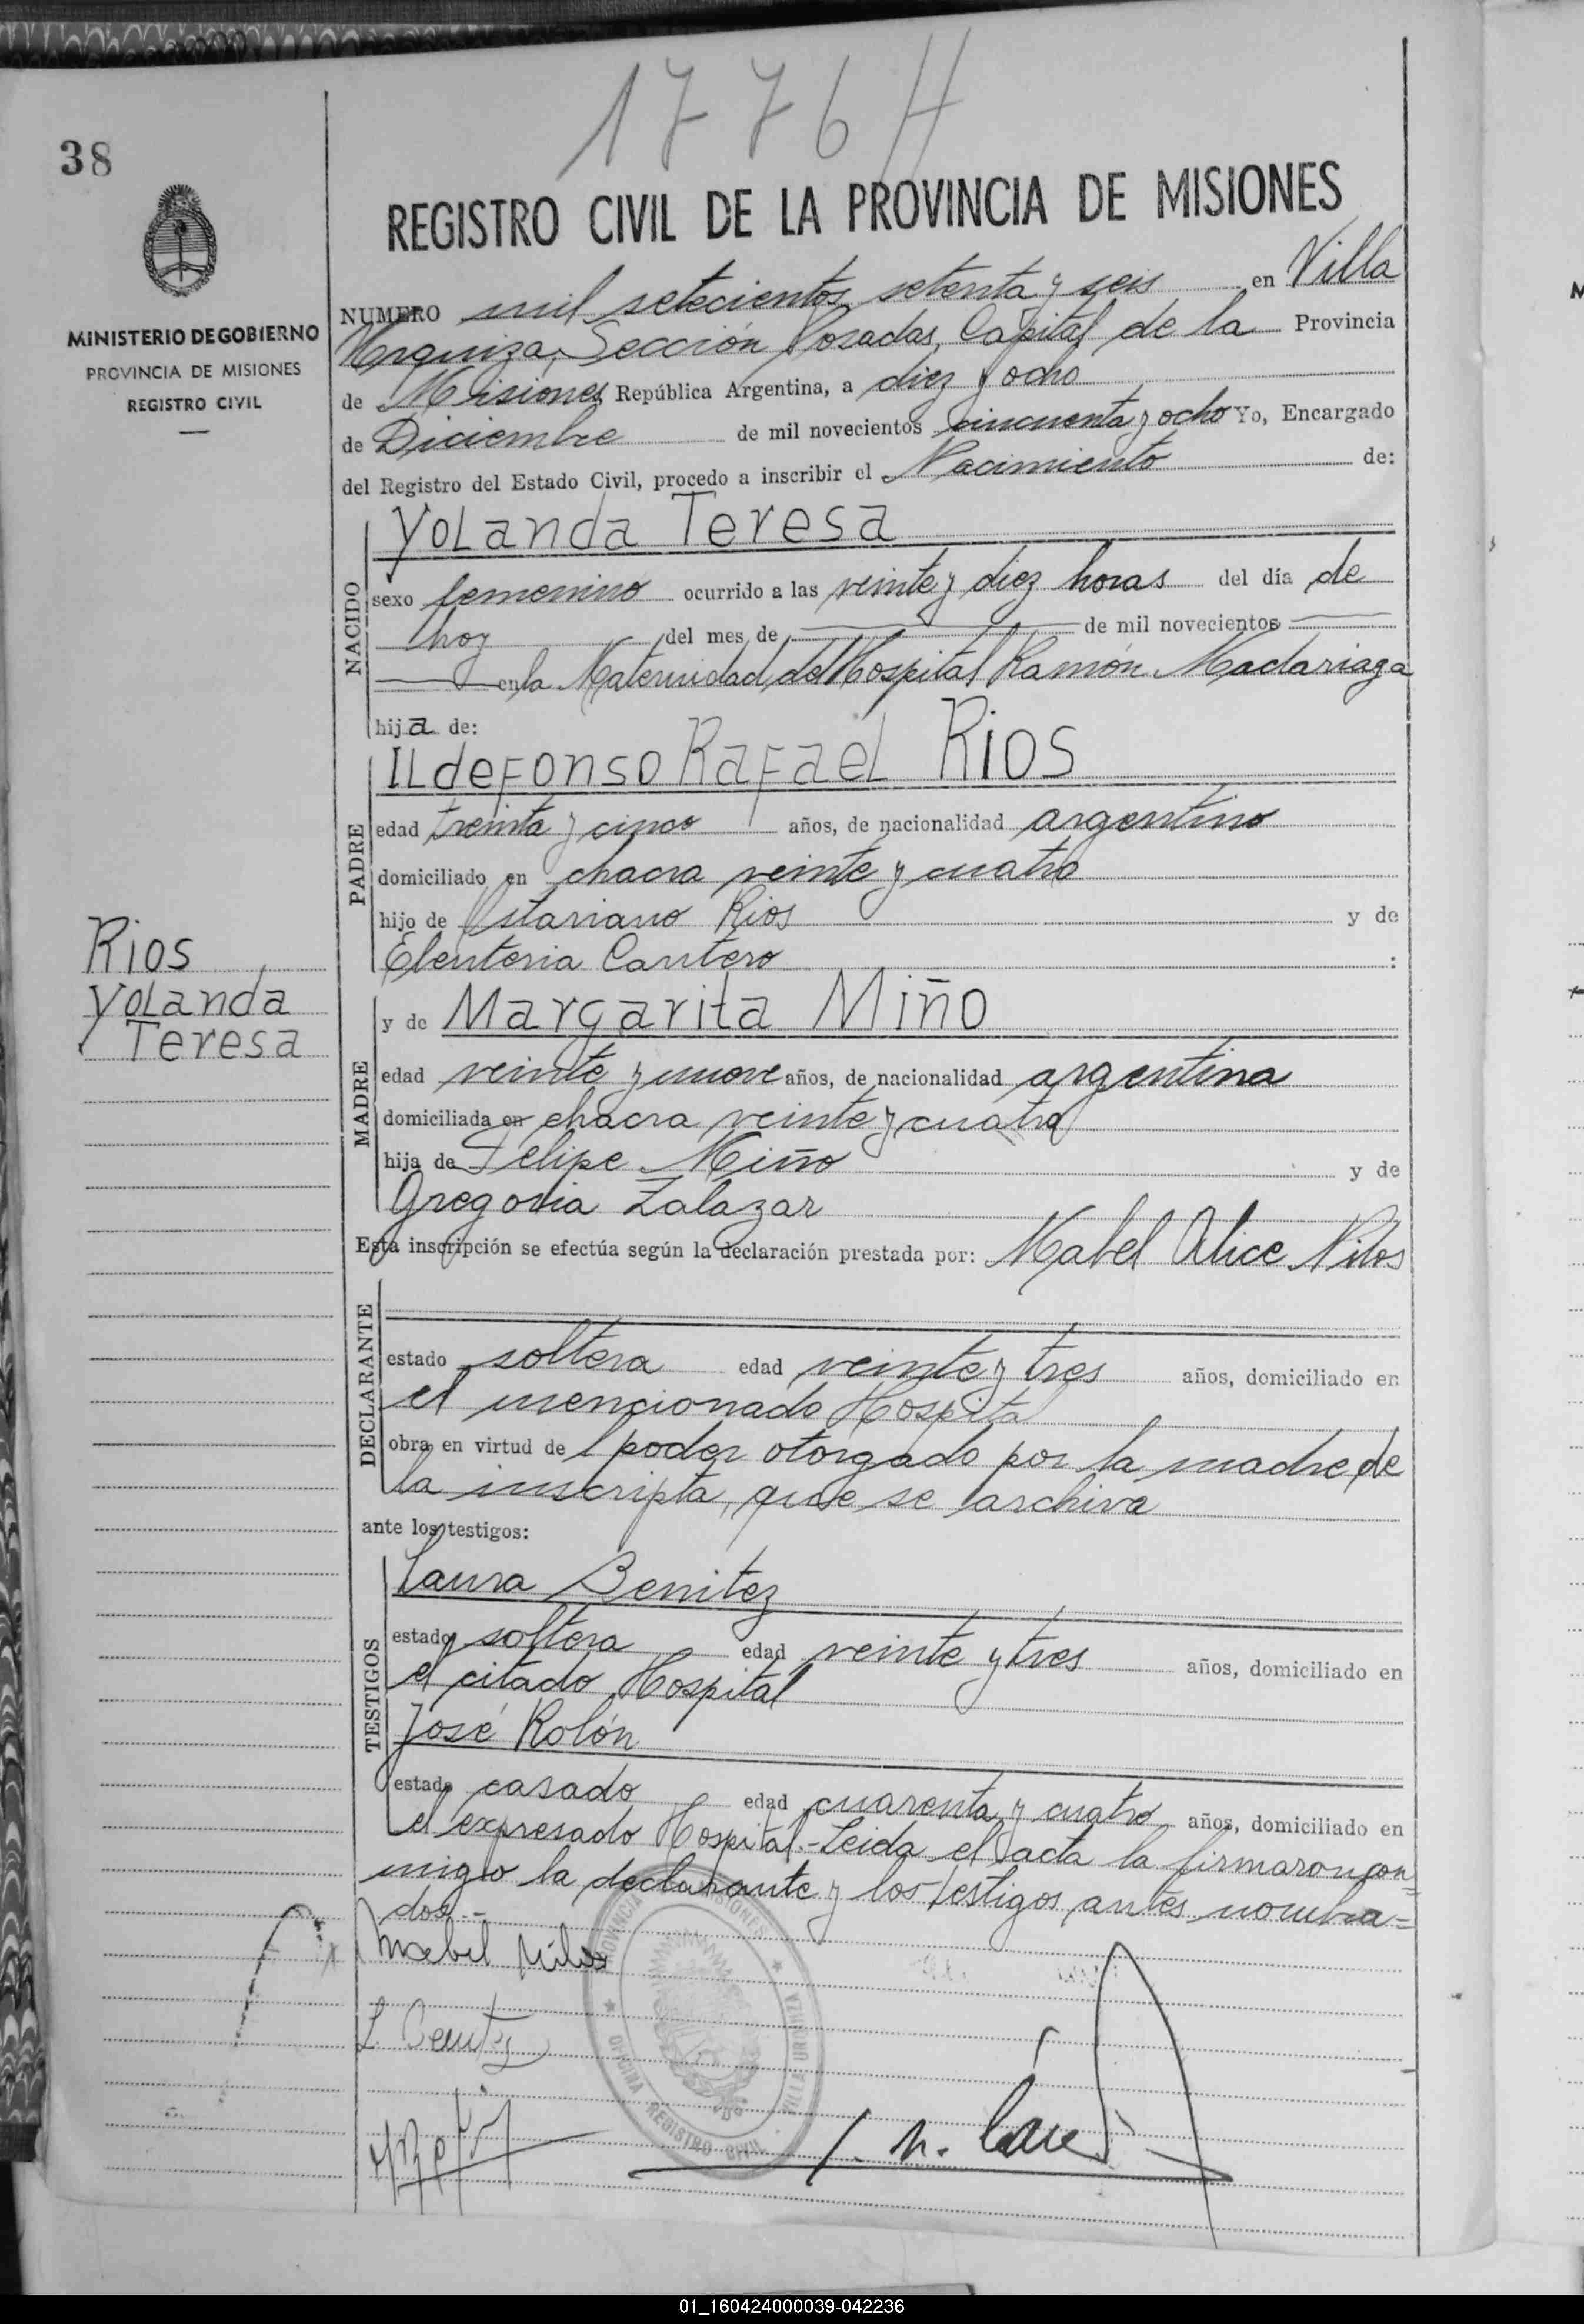 1776 H
38
REGISTRO CIVIL DE LA PROVINCIA DE MISIONES
MINISTERIO DE GOBIERNO
PROVINCIA DE MISIONES
REGISTRO CIVIL
NUMERO mil setecientos setenta y seis en Villa
Urquiza, Sección Posadas, Capital de la Provincia
de Misiones República Argentina, a diez y ocho
de Diciembre de mil novecientos cincuenta y ocho Yo, Encargado
del Registro del Estado Civil, procedo a inscribir el Nacimiento de:
NACIDO
Yolanda Teresa
sexo femenino ocurrido a las veinte y diez horas del día de
hoy del mes de de mil novecientos
en la Maternidad del Hospital Ramón Madariaga
hija de:
PADRE
Ildefonso Rafael Rios
edad treinta y cinco años, de nacionalidad argentino
domiciliado en chacra veinte y cuatro
hijo de Rios y de
Eleuteria Cantero :
Rios
Yolanda
Teresa
MADRE
y de Margarita Miño
edad veinte y nueve años, de nacionalidad argentina
domiciliada en chacra veinte y cuatro
hija de Felipe Miño y de
Gregoria Zalazar
Esta inscripción se efectúa según la declaración prestada por: Mabel Alice Nilos
DECLARANTE
estado soltera edad veinte y tres años, domiciliado en
el mencionado Hospital
obra en virtud de poder otorgado por la madre de
la inscripta, que se archiva
ante los testigos:
TESTIGOS
Laura Benitez
estado soltera edad veinte y tres años, domiciliado en
el citado Hospital
José Rolón
estado casado edad cuarenta y cuatro años, domiciliado en
el expresado Hospital.- Leida el acta la firmaron con=
migo la declarante y los testigos antes nombra=
dos.-
Mabel Nilos
L. Benitez
PROVINCIA MISIONES
OFICINA REGISTRO CIVIL VILLA URQUIZA
01_160424000039-042236